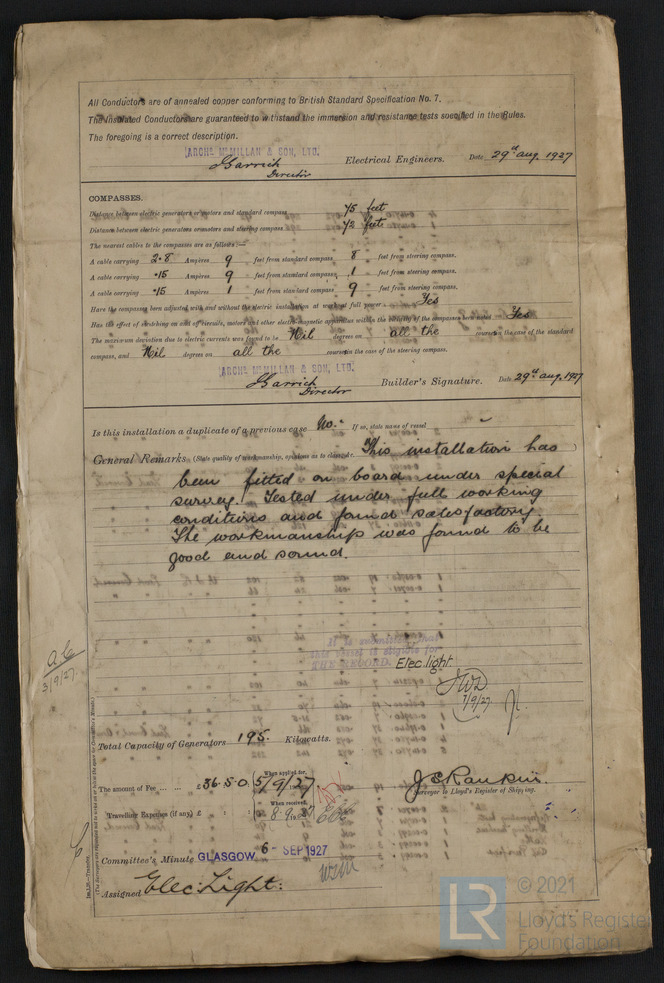 All Conductors are of annealed copper conforming to British Standard Specification No. 7.
The Insulated Conductors are guaranteed to withstand the immersion and resistance tests specified in the Rules.
The foregoing is a correct description.
ARCHD. McMILLAN & SON, LTD.
Director Electrical Engineers. Date 29th Aug. 1927
COMPASSES.
Distance between electric generators or motors and standard compass 75 feet
Distance between electric generators or motors and steering compass 72 feet
The nearest cables to the compasses are as follows:—
A cable carrying 2.8 Ampères 9 feet from standard compass 8 feet from steering compass.
A cable carrying .15 Ampères 9 feet from standard compass 1 feet from steering compass.
A cable carrying .15 Ampères 1 feet from standard compass 9 feet from steering compass.
Have the compasses been adjusted with and without the electric installation at work at full power Yes
Has the effect of switching on and off circuits, motors and other electro-magnetic apparatus within the vicinity of the compasses been noted Yes
The maximum deviation due to electric currents was found to be Nil degrees on all the courses in the case of the standard
compass, and Nil degrees on all the courses in the case of the steering compass.
ARCHD. McMILLAN & SON, LTD.
Director Builder's Signature. Date 29th Aug. 1927
Is this installation a duplicate of a previous case No. If so, state name of vessel
General Remarks. (State quality of workmanship, opinions as to class, &c. This installation has
been fitted on board under special
survey. Tested under full working
conditions and found satisfactory.
The workmanship was found to be
good and sound.
It is submitted that
this vessel is eligible for
THE RECORD. Elec. light.
7/9/27.
3/9/27.
Total Capacity of Generators 195. Kilowatts.
The amount of Fee ... ... £ 36.5.0. When applied for, 5/9/27
J S Rankin.
Surveyor to Lloyd's Register of Shipping.
Travelling Expenses (if any) £ : : When received, 8.9.27
Committee's Minute GLASGOW 6 - SEP 1927
Assigned Elec. Light.
© 2021
LR
Lloyd's Register
Foundation